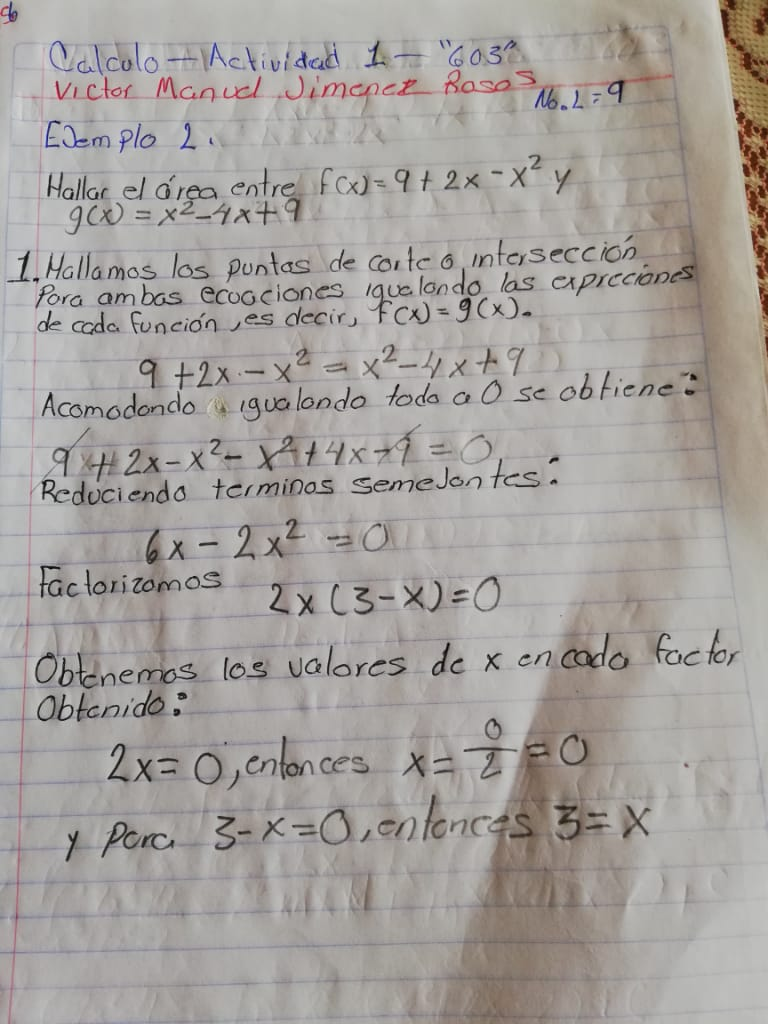 Calculo - Actividad 1 - "603"
Victor Manuel Jimenez Rosas
No. L = 9
Ejemplo 2.
Hallar el área entre f(x) = 9 + 2x - x² y
g(x) = x² - 4x + 9
1. Hallamos los puntas de corte o intersección
Para ambas ecuaciones igualando las expreciones
de cada función, es decir, f(x) = g(x).
9 + 2x - x² = x² - 4x + 9
Acomodando igualando todo a 0 se obtiene:
9 + 2x - x² - x² + 4x - 9 = 0
Reduciendo terminos semejantes:
6x - 2x² = 0
Factorizamos
2x (3 - x) = 0
Obtenemos los valores de x en cada factor
Obtenido:
2x = 0, entonces x = 0/2 = 0
y para 3 - x = 0, entonces 3 = x